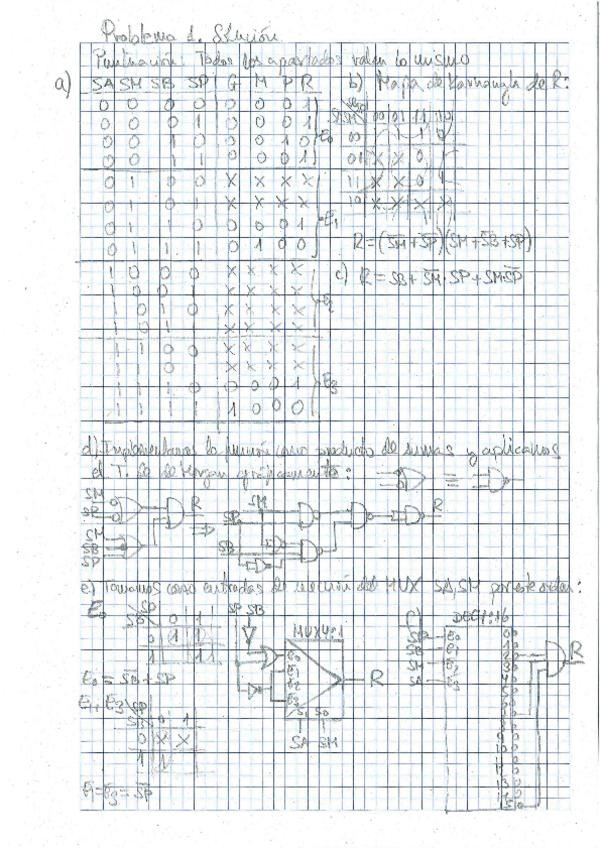 Problema 1. Solución
Puntuación: Todos los apartados valen lo mismo
a) SA SM SB SP G M P R
0 0 0 0 0 0 0 1
0 0 0 1 0 0 0 1
0 0 1 0 0 0 1 0
0 0 1 1 0 0 0 1
E0
0 1 0 0 X X X X
0 1 0 1 X X X X
0 1 1 0 0 0 0 1
0 1 1 1 0 1 0 0
E1
1 0 0 0 X X X X
1 0 0 1 X X X X
1 0 1 0 X X X X
1 0 1 1 X X X X
E2
1 1 0 0 X X X X
1 1 0 1 X X X X
1 1 1 0 0 0 0 1
1 1 1 1 1 0 0 0
E3
b) Mapa de Karnaugh de R:
00 01 11 10
00 1 1 1 0
01 X X 0 1
11 X X 0 1
10 X X X X
R=(S̅M̅+S̅P̅)(SM+S̅B̅+SP)
c)
d) Implementamos la función como producto de sumas y aplicamos
el T. de De Morgan gráficamente:
SM
SP
R
SM
SB
SP
SM
SP
SB
R
e) Tomamos como entradas de selección del MUX SA, SM por este orden:
E0
SP
SB 0 1
0 1 1
1 1
E0 = S̅B̅ + SP
E1, E3
SP
SB 0 1
0 X X
1 1
E1=E3= S̅P̅
SP SB
MUX 4:1
R
SA SM
DEC 4:16
SP
SB
SM
SA
R